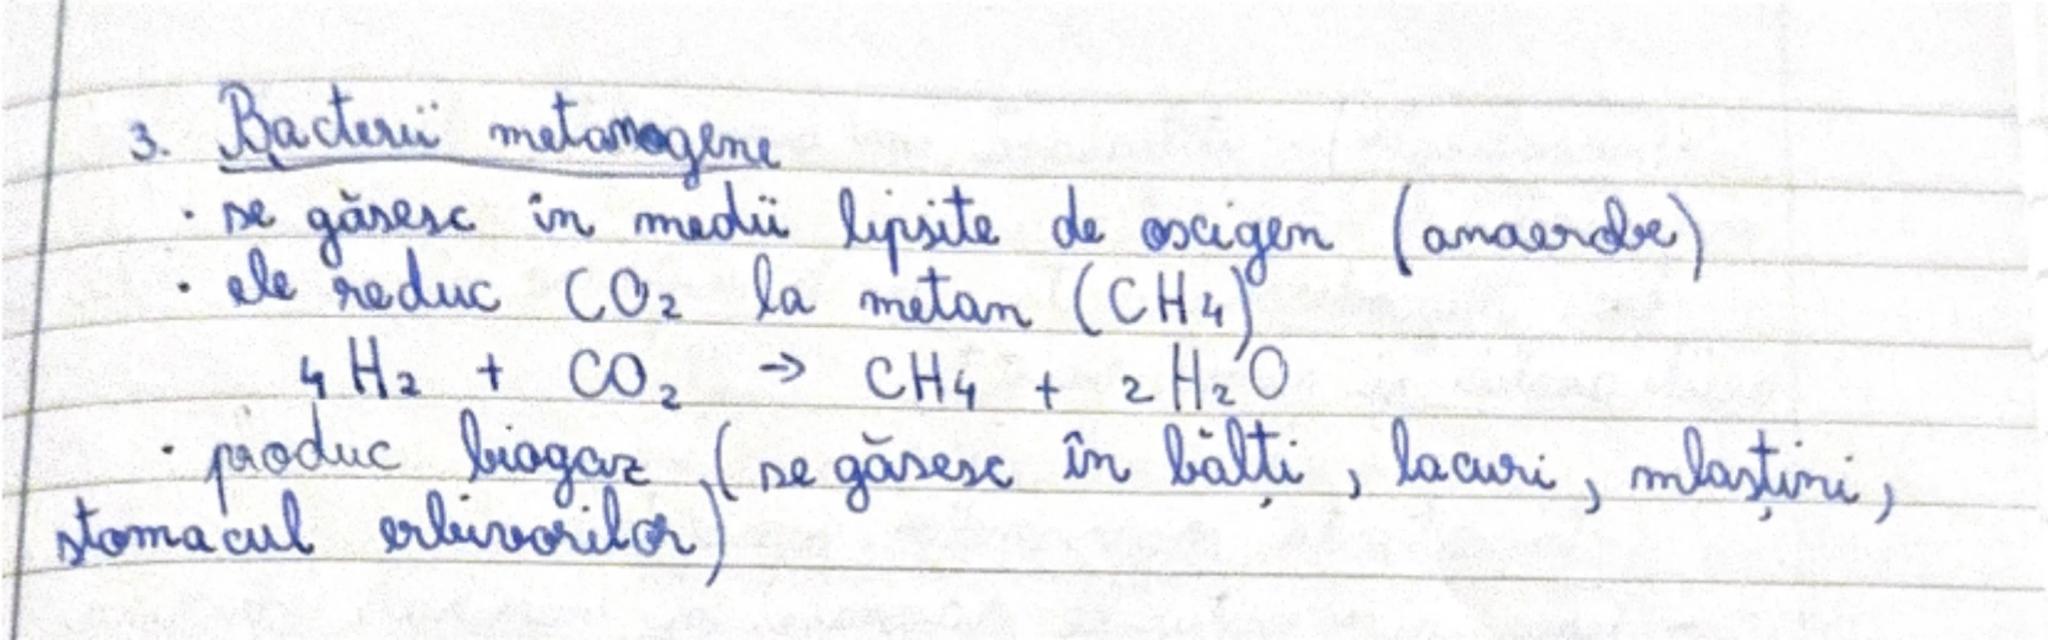 3. Bacterii metanogene
· se găsesc în medii lipsite de oxigen (anaerobe)
· ele reduc CO₂ la metan (CH₄)
4 H₂ + CO₂ → CH₄ + 2 H₂O
· produc biogaz (se găsesc în bălți, lacuri, mlaștini,
stomacul erbivorilor)